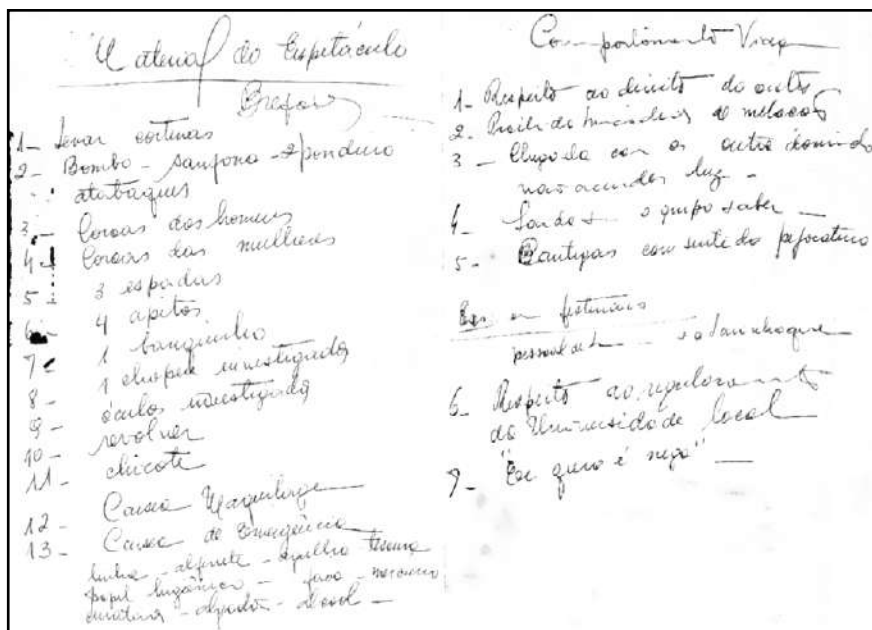 Material do Espetáculo
1- Levar cortinas
2- Bombo - sanfona - 2 pandeiro
atabaques
3- Coroas dos homens
4- Coroas das mulheres
5- 3 espadas
6- 4 apitos
7- 1 banquinho
8- 1 chapeu investigador
9- óculos investigador
10- revolver
11- chicote
12- Caixa Maquilage
13- Caixa de Emergência
linha - alfinete - agulha tesoura
papel higiênico - faca -
- algodão - alcool -
Comportamento Viagem
1- Respeito ao direito do outro
2. de
3 - Chegada com os outro dormindo
não acender luz -
4- o grupo saber -
5- Cantigas com sentido pejorativo
em festivais
pessoal
6- Respeito ao regulamento
da Universidade local
7- "Eu quero é nego" -